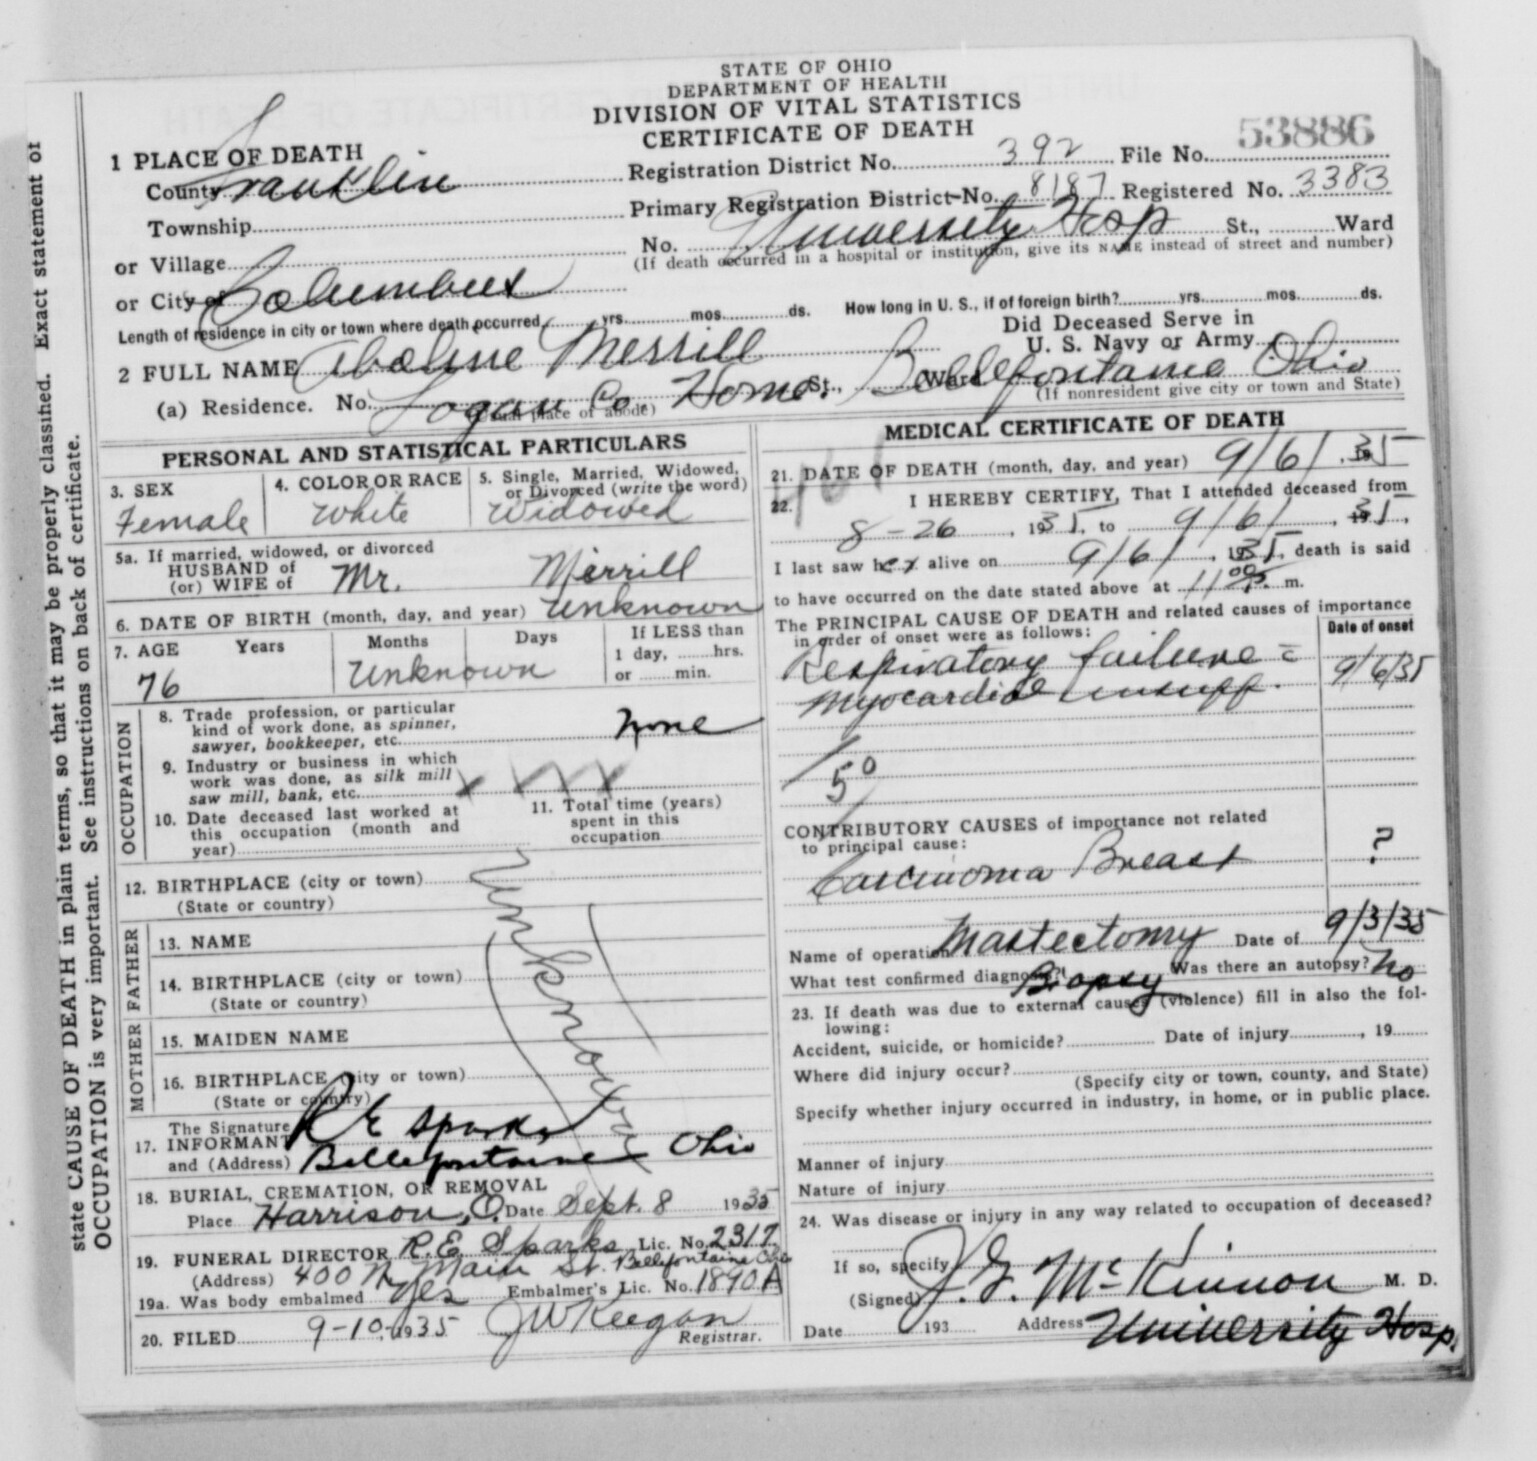 STATE OF OHIO
DEPARTMENT OF HEALTH
DIVISION OF VITAL STATISTICS
CERTIFICATE OF DEATH
53886
1 PLACE OF DEATH
County Franklin
Registration District No. 392 File No.
Township
Primary Registration District No. 8187 Registered No. 3383
or Village
No. University Hosp St., Ward
(If death occurred in a hospital or institution, give its NAME instead of street and number)
or City of Columbus
Length of residence in city or town where death occurred yrs. mos. ds. How long in U. S., if of foreign birth? yrs. mos. ds.
Did Deceased Serve in
U. S. Navy or Army
2 FULL NAME Merrill
(a) Residence. No. Logan Co. Home. St., Ward Bellefontaine Ohio
(Usual place of abode) (If nonresident give city or town and State)
PERSONAL AND STATISTICAL PARTICULARS
3. SEX
Female
4. COLOR OR RACE
White
5. Single, Married, Widowed,
or Divorced (write the word)
Widowed
5a. If married, widowed, or divorced
HUSBAND of
(or) WIFE of Mr. Merrill
6. DATE OF BIRTH (month, day, and year) Unknown
7. AGE Years Months Days If LESS than
1 day, hrs.
or min.
76 Unknown
OCCUPATION
8. Trade profession, or particular
kind of work done, as spinner,
sawyer, bookkeeper, etc. none
9. Industry or business in which
work was done, as silk mill
saw mill, bank, etc. x x x x
10. Date deceased last worked at
this occupation (month and
year)
11. Total time (years)
spent in this
occupation
12. BIRTHPLACE (city or town)
(State or country)
Unknown
FATHER
13. NAME
14. BIRTHPLACE (city or town)
(State or country)
MOTHER
15. MAIDEN NAME
16. BIRTHPLACE (city or town)
(State or country)
The Signature
17. INFORMANT R E Sparks
and (Address) Bellefontaine Ohio
18. BURIAL, CREMATION, OR REMOVAL
Place Harrison, O. Date Sept. 8 1935
19. FUNERAL DIRECTOR R. E. Sparks Lic. No. 2317
(Address) 400 N. Main St. Bellefontaine Ohio
19a. Was body embalmed Yes Embalmer's Lic. No. 1890 A
20. FILED 9-10, 1935 JW Keegan
Registrar.
MEDICAL CERTIFICATE OF DEATH
461
21. DATE OF DEATH (month, day, and year) 9/6/, 35
22. I HEREBY CERTIFY, That I attended deceased from
8-26, 1935, to 9/6/, 35,
I last saw her alive on 9/6/, 1935, death is said
to have occurred on the date stated above at 11 00 P. m.
The PRINCIPAL CAUSE OF DEATH and related causes of importance
in order of onset were as follows:
Date of onset
Respiratory failure = 9/6/35
Myocardial insuff.
50
CONTRIBUTORY CAUSES of importance not related
to principal cause:
Carcinoma Breast ?
Name of operation Mastectomy Date of 9/3/35
What test confirmed diagnosis? Biopsy Was there an autopsy? No
23. If death was due to external causes (violence) fill in also the fol-
lowing:
Accident, suicide, or homicide? Date of injury, 19
Where did injury occur?
(Specify city or town, county, and State)
Specify whether injury occurred in industry, in home, or in public place.
Manner of injury
Nature of injury
24. Was disease or injury in any way related to occupation of deceased?
If so, specify
(Signed) J. G. McKinnon M. D.
Date 193 Address University Hosp.
state CAUSE OF DEATH in plain terms, so that it may be properly classified. Exact statement of
OCCUPATION is very important. See instructions on back of certificate.